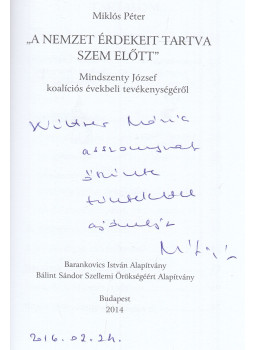 Miklós Péter
„A NEMZET ÉRDEKEIT TARTVA
SZEM ELŐTT”
Mindszenty József
koalíciós évekbeli tevékenységéről
Mária
asszonynak
őszinte
tisztelettel
ajánlja
Barankovics István Alapítvány
Bálint Sándor Szellemi Örökségéért Alapítvány
Budapest
2014
2016.02.24.